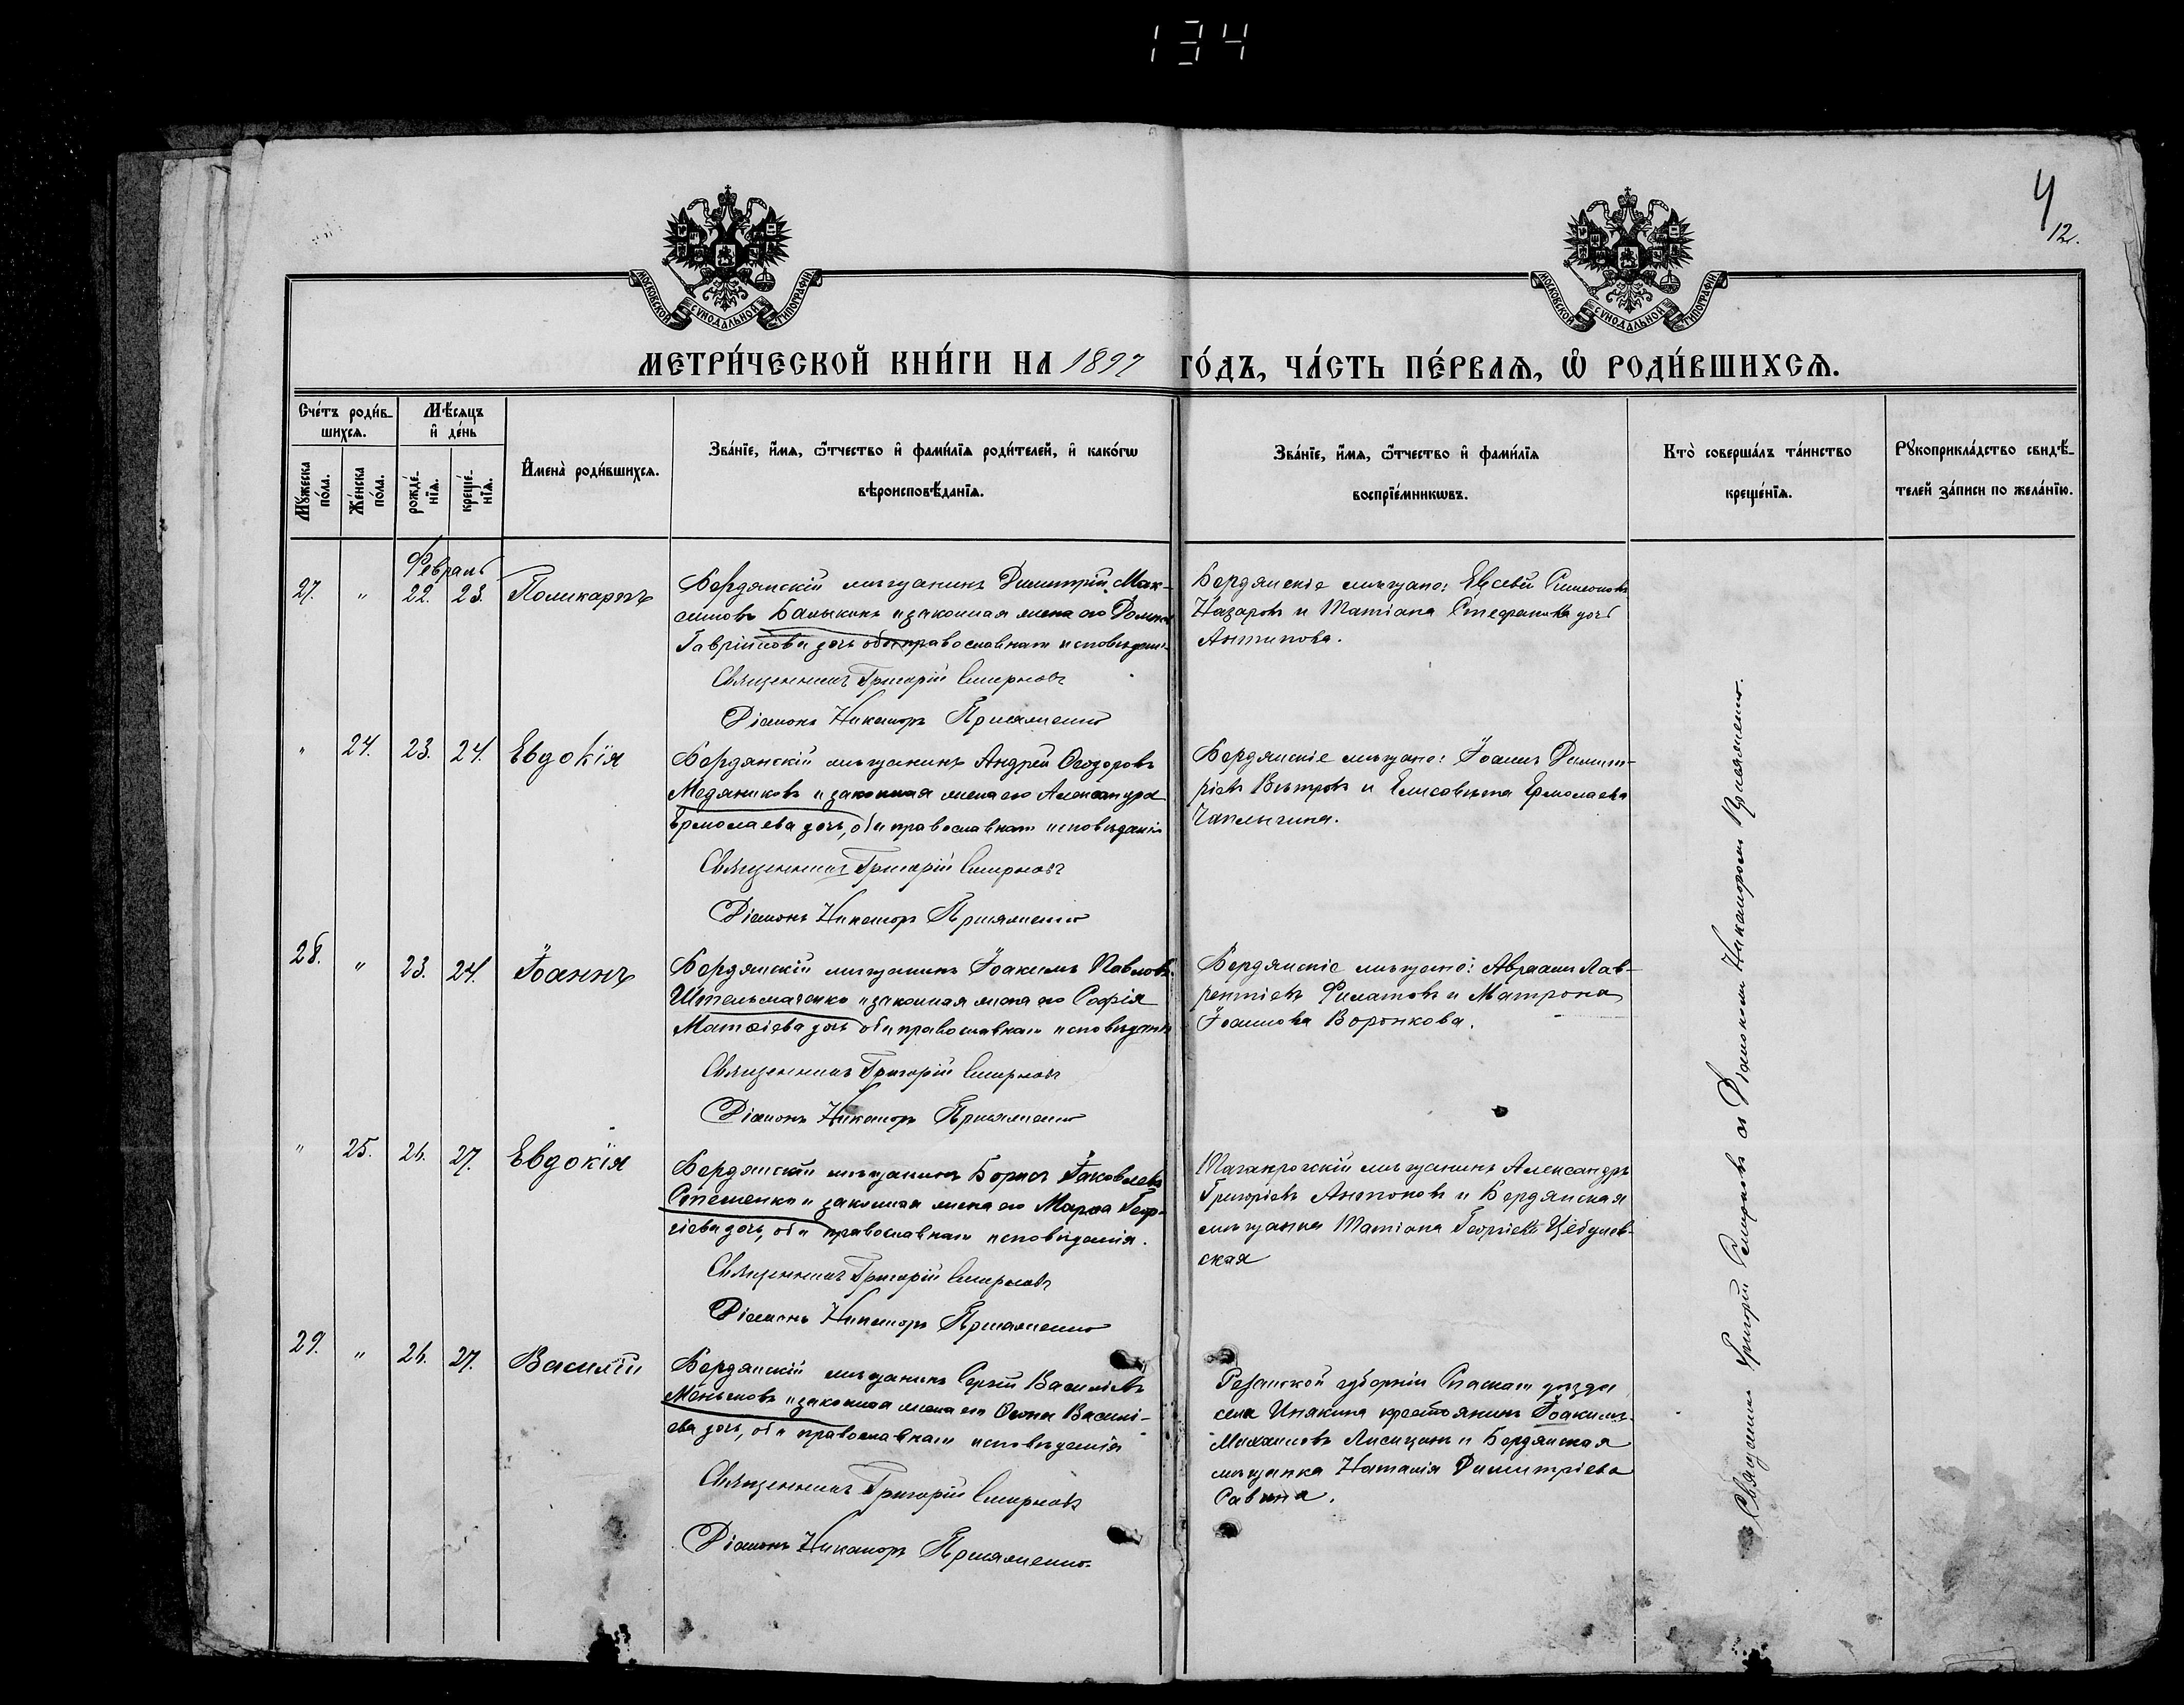 134
4
12.
МОСКОВСКОЙ СѴНОДАЛЬНОЙ ТИПОГРАФІИ
МОСКОВСКОЙ СѴНОДАЛЬНОЙ ТИПОГРАФІИ
МЕТРИ́ЧЕСКОЙ КНИ́ГИ НА 1897 ГО́ДЪ, ЧА́СТЬ ПЕ́РВАѦ, Ѡ РОДИ́ВШИХСѦ.
Сче́тъ роди́в-
шихсѧ.
Мѣ́сяцъ
и҆ де́нь
Мꙋ́жеска
по́ла.
Же́нска
по́ла.
рожде́-
нїѧ.
креще́-
нїѧ.
И҆мена̀ роди́вшихсѧ.
Зва́нїе, и҆́мѧ, ѻ҆́тчество и҆ фами́лїѧ роди́телей, и҆ како́гѡ
вѣроисповѣ́данїѧ.
Зва́нїе, и҆́мѧ, ѻ҆́тчество и҆ фами́лїѧ
воспрїе́мникѡвъ.
Кто̀ соверша́лъ та́инство
креще́нїѧ.
Рꙋкоприкла́дство свидѣ́-
телей за́писи по жела́нїю.
Февраль
27. " 22. 23. Поликарпъ
Бердянскій мѣщанинъ Димитрій Мак-
симовъ Балыкинъ и законная жена его
Гавріилова дочь оба православнаго исповѣданія
Священникъ Григорій Смирновъ
Діаконъ Никаноръ
Бердянскіе мѣщане: Евсевій Симеоновъ
Назаровъ и Татіана Стефанова дочь
Антипова.
" 24. 23. 24. Евдокія
Бердянскій мѣщанинъ Андрей Ѳеодоровъ
Медяниковъ и законная жена его Александра
Ермолаева дочь, оба православнаго исповѣданія
Священникъ Григорій Смирновъ
Діаконъ Никаноръ
Бердянскіе мѣщане: Іоаннъ Димит-
ріевъ Вѣтровъ и Елисавета Ермолаева
Чаплыгина.
28. " 23. 24. Іоаннъ
Бердянскій мѣщанинъ Іоакимъ Павловъ
Штельмаченко и законная жена его Софія
Матѳіева дочь оба православнаго исповѣданія
Священникъ Григорій Смирновъ
Діаконъ Никаноръ
Бердянскіе мѣщане: Авраамъ Лав-
рентіевъ Филатовъ и Матрона
Іоаннова Воронкова.
" 25. 26. 27. Евдокія
Бердянскій мѣщанинъ Борисъ Іаковлевъ
Стешенко и законная жена его Марѳа Геор-
гіева дочь, оба православнаго исповѣданія.
Священникъ Григорій Смирновъ
Діаконъ Никаноръ
Таганрогскій мѣщанинъ Александръ
Григоріевъ Антоновъ и Бердянская
мѣщанка Татіана Георгіева Цебулев-
ская
29. " 26. 27. Василій
Бердянскій мѣщанинъ Сергій Василіевъ
Меньковъ и законная жена его Васильі-
ева дочь, оба православнаго исповѣданія
Священникъ Григорій Смирновъ
Діаконъ Никаноръ
Рязанской губерніи Спаскаго уѣзда
села Инякина крестьянинъ Іоакимъ
Михаиловъ Лисицынъ и Бердянская
мѣщанка Наталія Димитріева
Савина.
Священникъ Григорій Смирновъ съ Діакономъ Никаноромъ